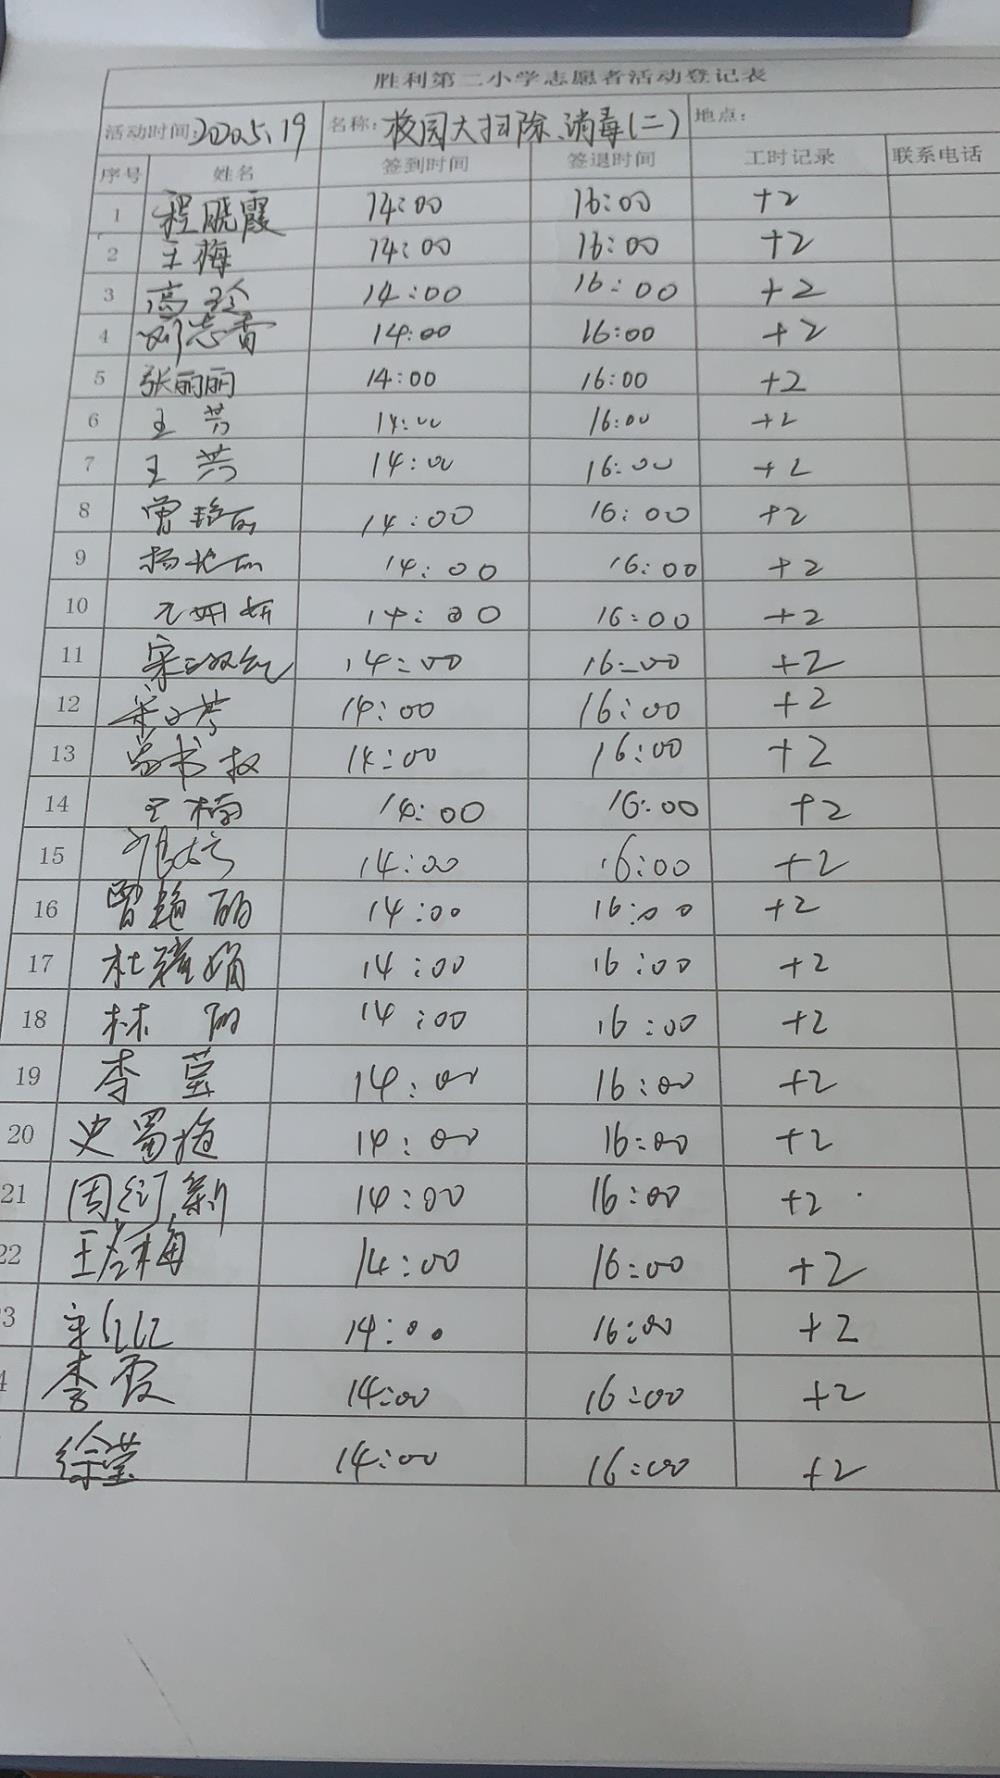 胜利第二小学志愿者活动登记表
活动时间:2020.5.19 名称:校园大扫除、消毒(二) 地点:
序号 姓名 签到时间 签退时间 工时记录 联系电话
1 程晓霞 14:00 16:00 +2
2 王梅 14:00 16:00 +2
3 高玲 14:00 16:00 +2
4 刘志香 14:00 16:00 +2
5 张丽丽 14:00 16:00 +2
6 王芳 14:00 16:00 +2
7 王芳 14:00 16:00 +2
8 曾艳丽 14:00 16:00 +2
9 杨 14:00 16:00 +2
10 14:00 16:00 +2
11 宋 14:00 16:00 +2
12 14:00 16:00 +2
13 14:00 16:00 +2
14 王楠 14:00 16:00 +2
15 14:00 16:00 +2
16 曾艳丽 14:00 16:00 +2
17 杜娟 14:00 16:00 +2
18 林丽 14:00 16:00 +2
19 李莹 14:00 16:00 +2
20 史蜀 14:00 16:00 +2
21 周新 14:00 16:00 +2
22 王春梅 14:00 16:00 +2
3 宋红红 14:00 16:00 +2
4 李霞 14:00 16:00 +2
徐莹 14:00 16:00 +2